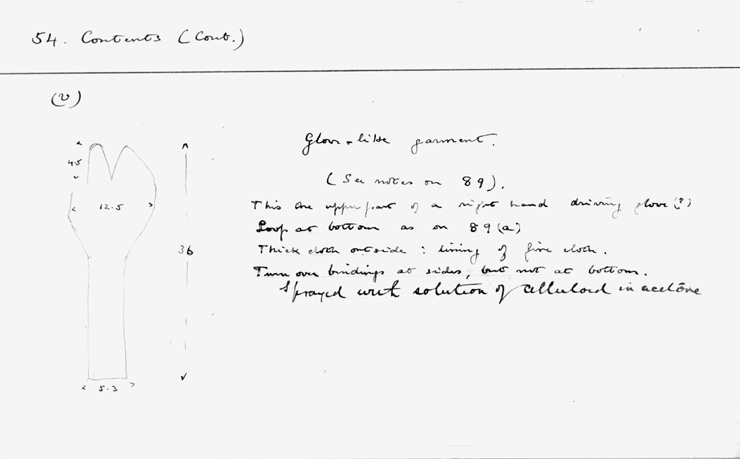 54. Contents (Cont.)
(v)
Glove-like garment.
(See notes on 89).
4.5
12.5
36
5.3
This the upper part of a right hand driving glove (?)
Loop at bottom as on 89(a)
Thick cloth outside : lining of fine cloth.
Turn over bindings at sides, but not at bottom.
Sprayed with solution of celluloid in acetone